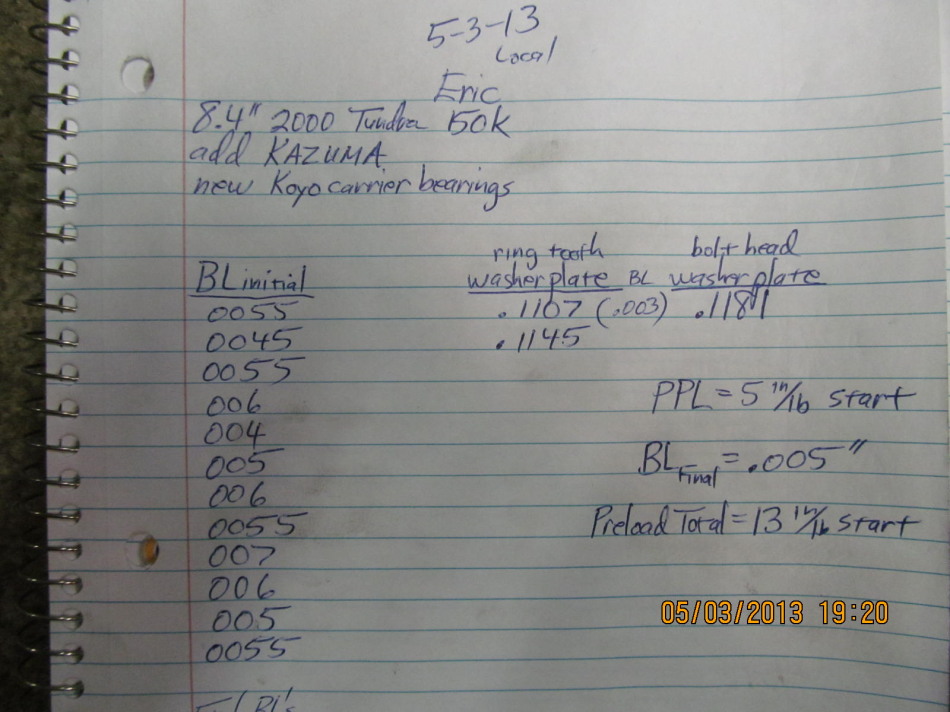 5-3-13
Local
Eric
8.4" 2000 Tundra 150K
add KAZUMA
new Koyo carrier bearings
BL initial
0055
0045
0055
006
004
005
006
0055
007
006
005
0055
ring tooth
washer plate BL
.1107 (.003)
.1145
bolt head
washer plate
.1181
PPL = 5 in/lb start
BL Final = .005"
Preload Total = 13 in/lb start
05/03/2013 19:20
BL's